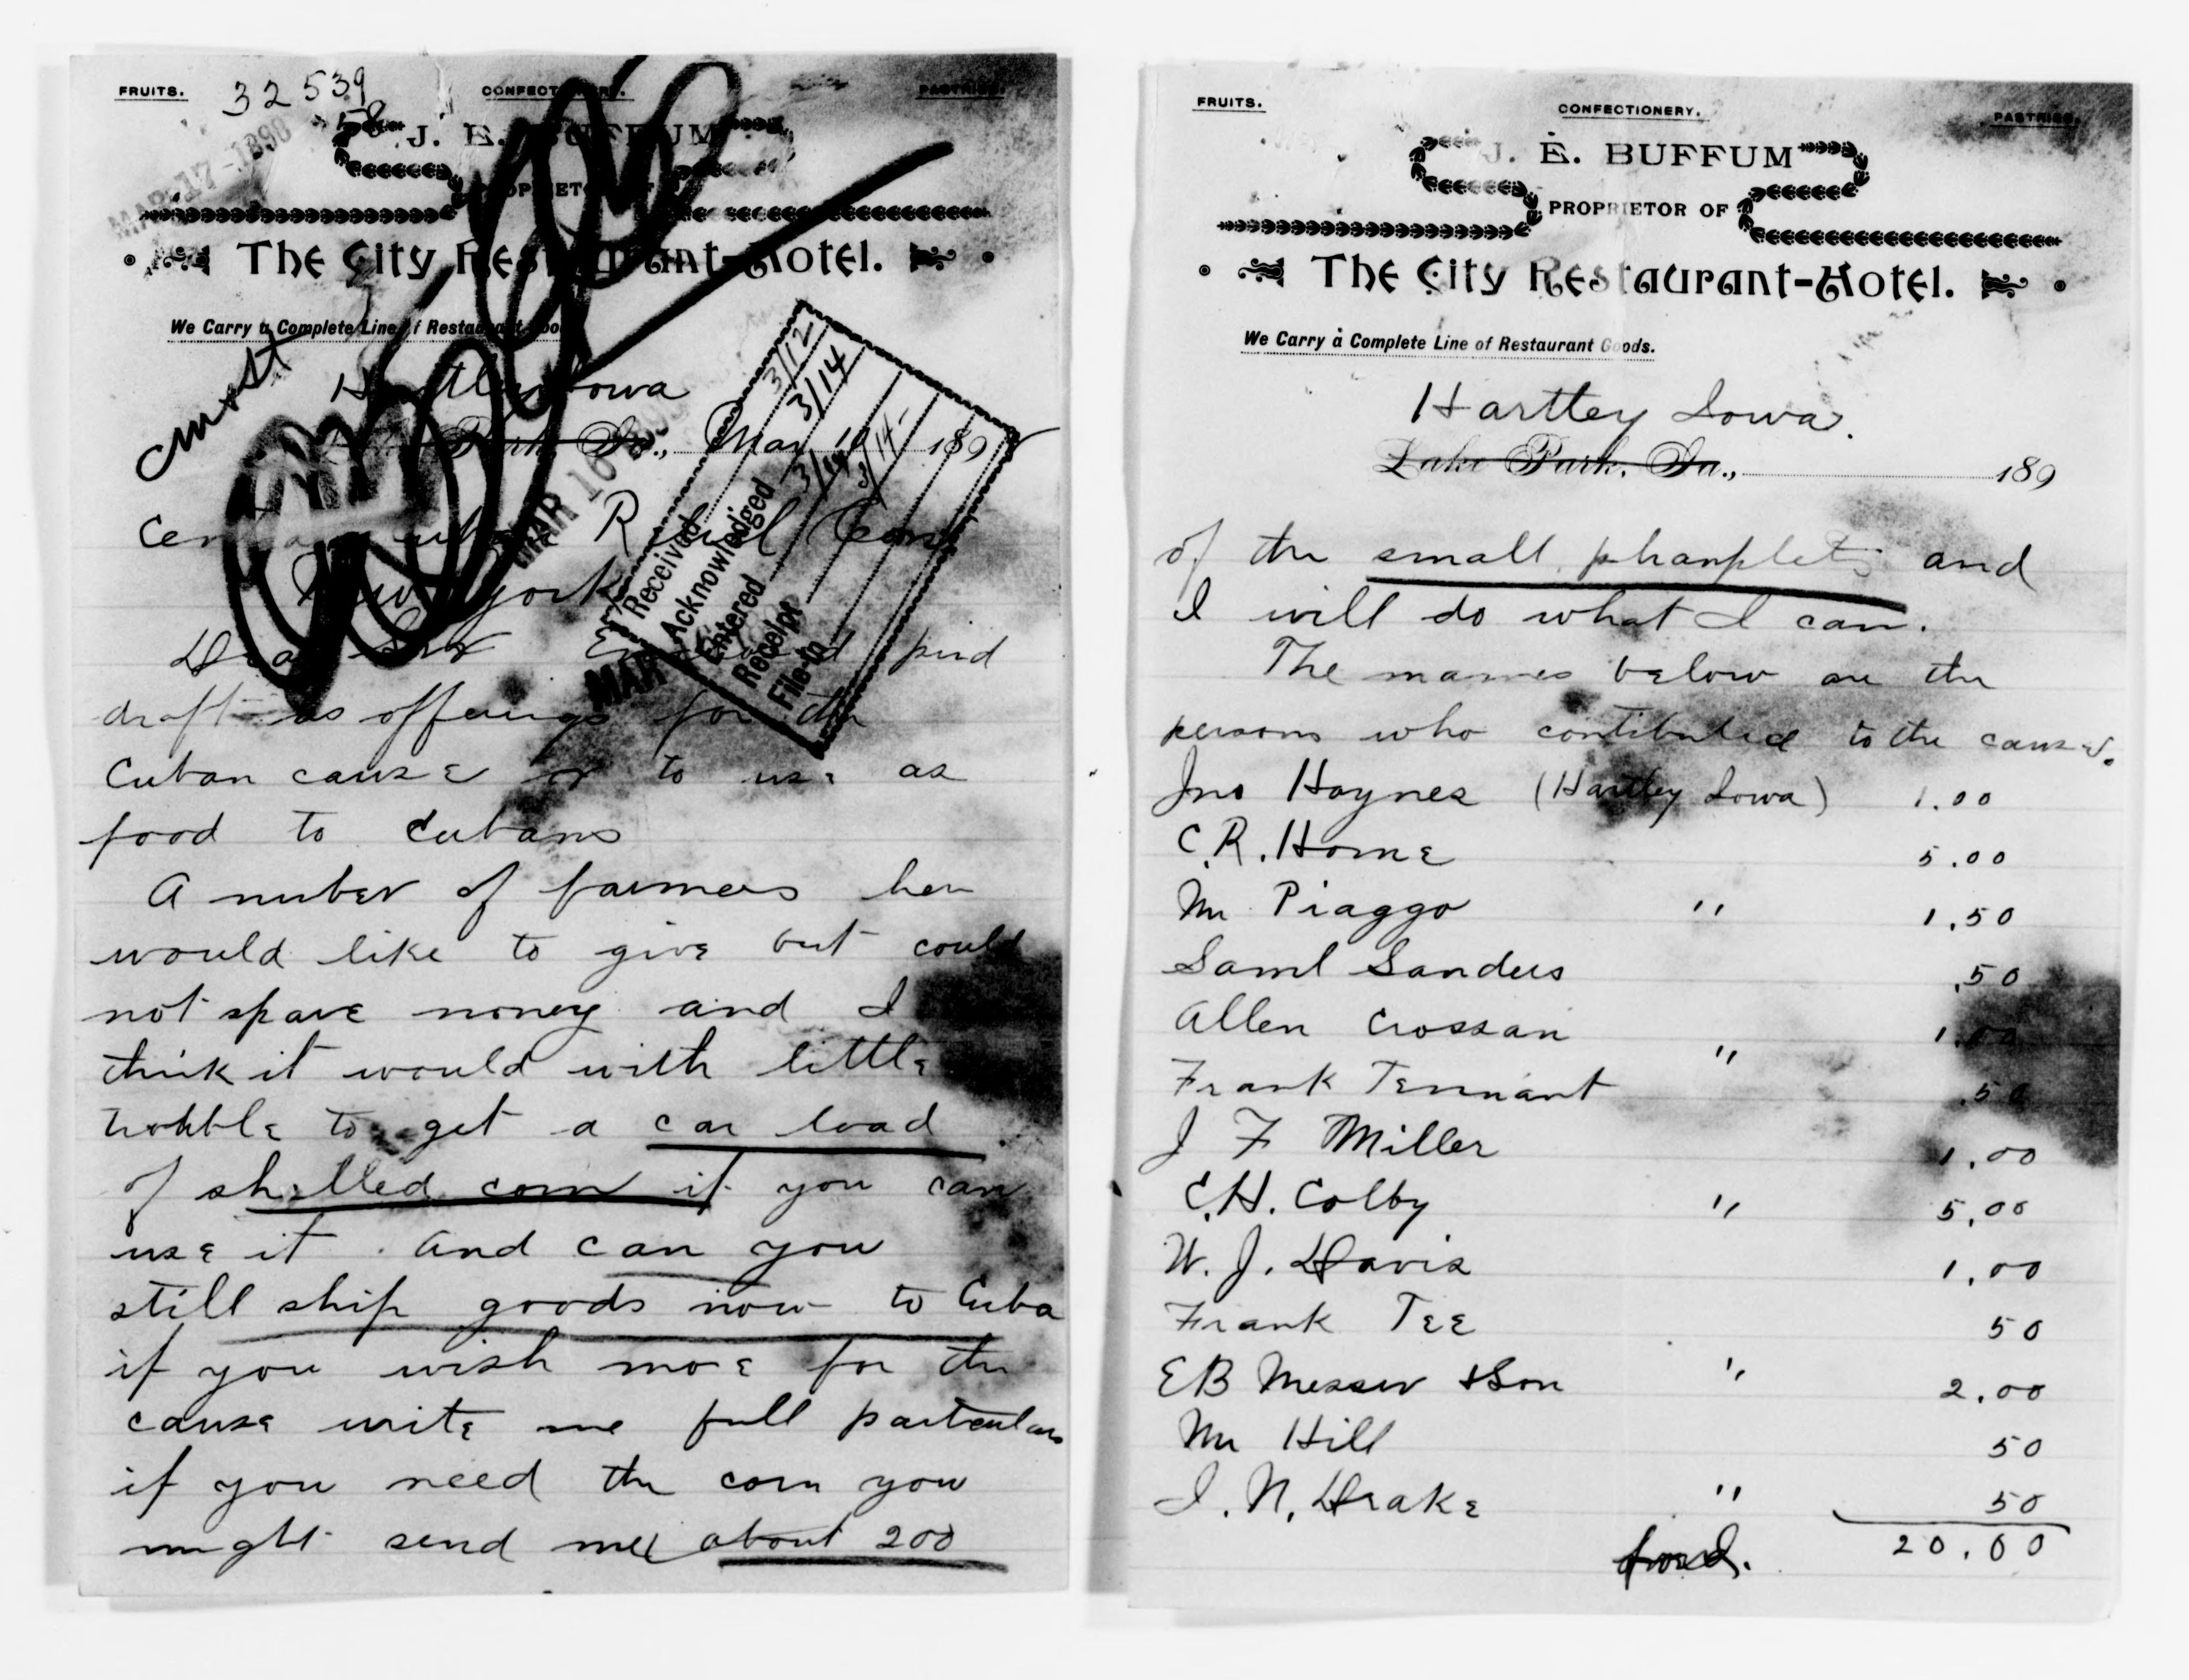 FRUITS. CONFECTIONERY. PASTRIES.
32539
MAR 17 1898
J. E. BUFFUM
PROPRIETOR OF
The City Restaurant-Hotel.
We Carry a Complete Line of Restaurant Goods.
Hartley Iowa
Lake Park, Ia., Mar 10 189
MAR 16
3/12
3/14
3/14
3/14
Received
Acknowledged
Entered
Receipt
File to
MAR
Central Cuban Relief Com
New York
Dear Sir Enclosed find
draft as offerings for the
Cuban cause or to use as
food to Cubans
A nuber of farmers her
would like to give but could
not spare money and I
think it would with little
trobble to get a car load
of shelled corn if you can
use it. And can you
still ship goods now to Cuba
if you wish more for the
cause write me full particulars
if you need the corn you
might send me about 200
FRUITS. CONFECTIONERY. PASTRIES.
J. E. BUFFUM
PROPRIETOR OF
The City Restaurant-Hotel.
We Carry a Complete Line of Restaurant Goods.
Hartley Iowa.
Lake Park, Ia., 189
of the small phamplets and
I will do what I can.
The names below are the
persons who contibuted to the cause.
Jno Haynes (Hartley Iowa) 1.00
C.R. Horne 5.00
Mr Piaggo " 1.50
Saml Sanders .50
Allen Crossan 1.00
Frank Tennant " .50
J F Miller 1.00
C.H. Colby " 5.00
W. J. Davis 1.00
Frank Tee 50
EB Messer & Son " 2.00
Mr Hill 50
I. N. Drake " 50
20.00